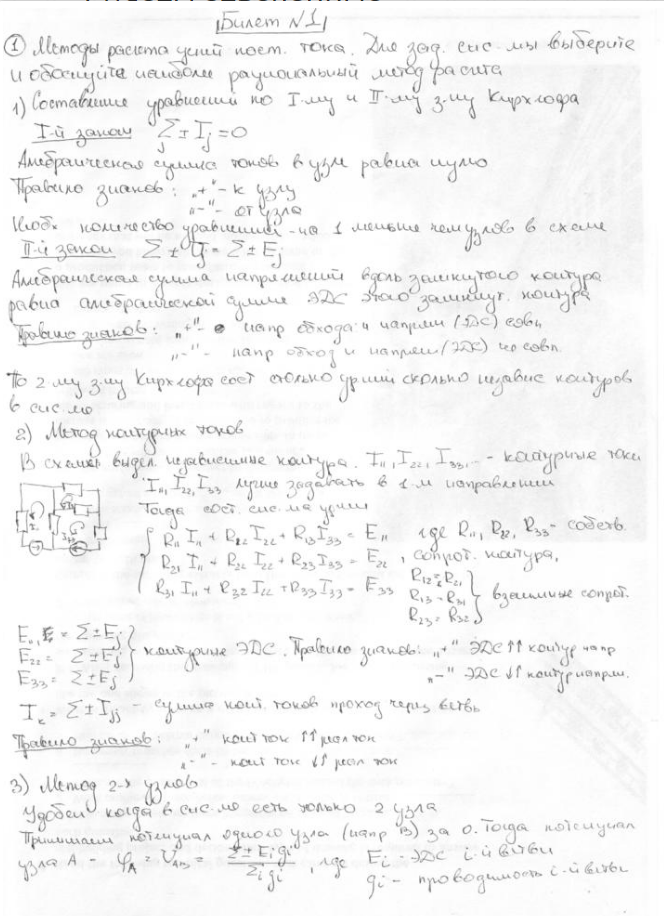 Билет N1
① Методы расчета цепей пост. тока. Для зад. сис-мы выберите
и обоснуйте наиболее рациональный метод расчета
1) Составление уравнений по I-му и II-му з-ну Кирхгофа
I-й закон ∑ ± Ij = 0
Алгебраическая сумма токов в узле равна нулю
Правило знаков: „+“ - к узлу
„-“ - от узла
Необх количество уравнений - на 1 меньше чем узлов в схеме
II-й закон ∑ ± Uj = ∑ ± Ej
Алгебраическая сумма напряжений вдоль замкнутого контура
равна алгебраической сумме ЭДС этого замкнут. контура
Правило знаков: „+“ - напр обхода и напряж (ЭДС) совп
„-“ - напр обход и напряж (ЭДС) не совп.
По 2-му з-ну Кирхгофа сост столько ур-ний сколько независ контуров
в сис-ме
2) Метод контурных токов
В схемах выдел. независимые контура. I11, I22, I33,... - контурные токи
I11, I22, I33 лучше задавать в 1-м направлении
Тогда сост. сис-ма ур-ний
R11 I11 + R12 I22 + R13 I33 = E11 где R11, R22, R33 - собств.
R21 I11 + R22 I22 + R23 I33 = E22 , сопрот. контура,
R31 I11 + R32 I22 + R33 I33 = E33
R12 = R21
R13 = R31 взаимные сопрот.
R23 = R32
E11 = ∑ ± Ej
E22 = ∑ ± Ej контурные ЭДС. Правило знаков: „+“ ЭДС ↑↑ контур напр
E33 = ∑ ± Ej „-“ ЭДС ↓↑ контур напрям.
Iк = ∑ ± Ijj - сумма конт. токов проход через ветвь
Правило знаков: „+“ конт ток ↑↑ реал ток
„-“ - конт ток ↓↑ реал ток
3) Метод 2-х узлов
Удобен когда в сис-ме есть только 2 узла
Принимаем потенциал одного узла (напр B) за 0. Тогда потенциал
узла A - φA = UAB = ∑ ± Ei gi / ∑i gi , где Ei - ЭДС i-й ветви
gi - проводимость i-й ветви